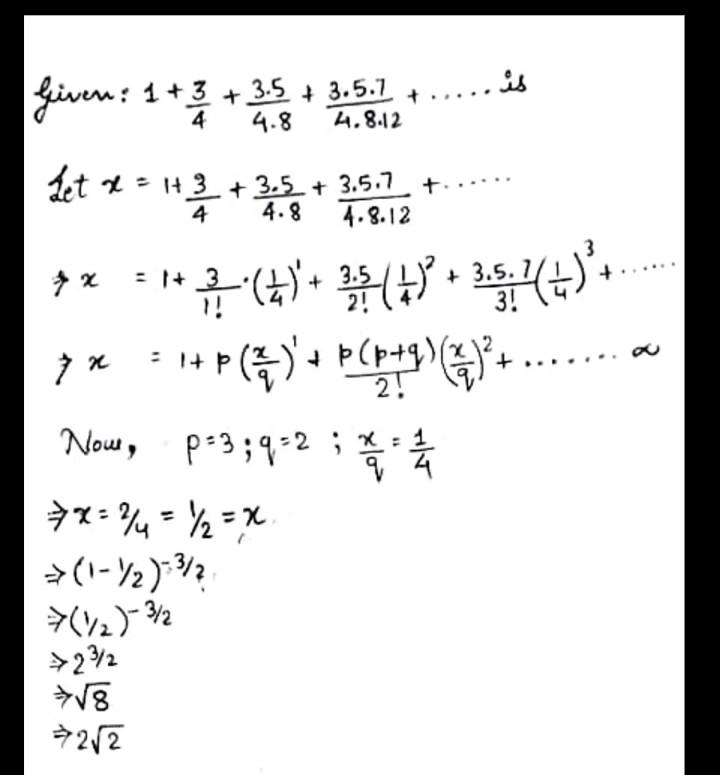 Given: 1 + 3/4 + 3.5/4.8 + 3.5.7/4.8.12 + ..... is
Let x = 1+ 3/4 + 3.5/4.8 + 3.5.7/4.8.12 + ......
⇒ x = 1+ 3/1! · (1/4)¹ + 3.5/2! (1/4)² + 3.5.7/3! (1/4)³ + ......
⇒ x = 1+ p (x/q)¹ + p(p+q)/2! (x/q)² + ........ ∞
Now, p=3 ; q=2 ; x/q = 1/4
⇒ x = 2/4 = 1/2 = x
⇒ (1-1/2)^-3/2
⇒ (1/2)^-3/2
⇒ 2^3/2
⇒ √8
⇒ 2√2